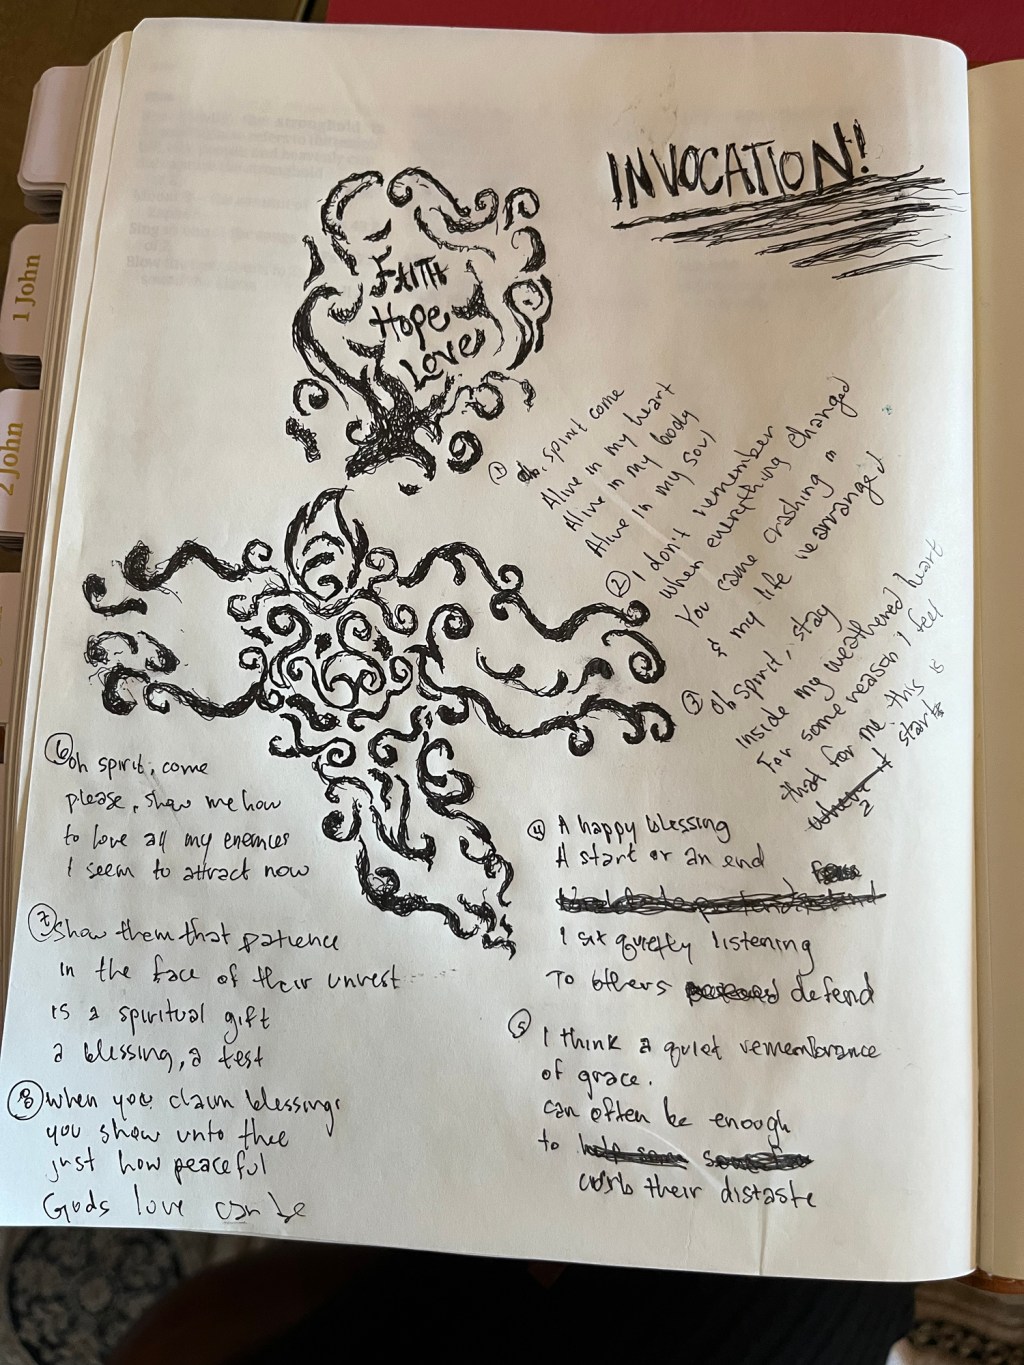 INVOCATION!
FAITH
Hope
Love
1 John
2 John
① oh, spirit come
Alive in my heart
Alive in my body
Alive in my soul
② I don't remember
when everything changed
You came crashing in
& my life rearranged
③ oh spirit, stay
inside my weathered heart
For some reason I feel
that for me, this is
a start
④ A happy blessing
A start or an end
I sit quietly listening
To others defend
⑤ I think a quiet remembrance
of grace.
can often be enough
to
curb their distaste
⑥ oh spirit, come
please, show me how
to love all my enemies
I seem to attract now
⑦ show them that patience
in the face of their unrest
is a spiritual gift
a blessing, a test
⑧ when you claim blessings
you show unto thee
just how peaceful
Gods love can be